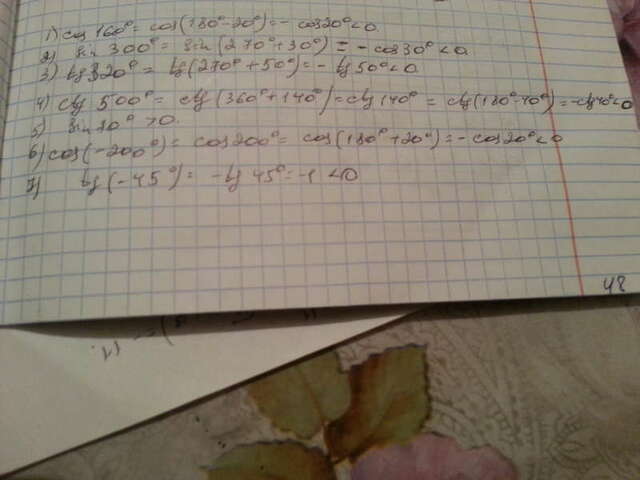 1) cos 160° = cos(180°-20°) = - cos20° < 0.
2) sin 300° = sin(270°+30°) = - cos30° < 0.
3) tg 320° = tg(270°+50°) = - tg50° < 0.
4) ctg 500° = ctg(360°+140°) = ctg 140° = ctg(180°-40°) = -ctg40° < 0
5) sin 10° > 0.
6) cos(-200°) = cos200° = cos(180°+20°) = - cos20° < 0
7) tg(-45°) = -tg 45° = -1 < 0
48